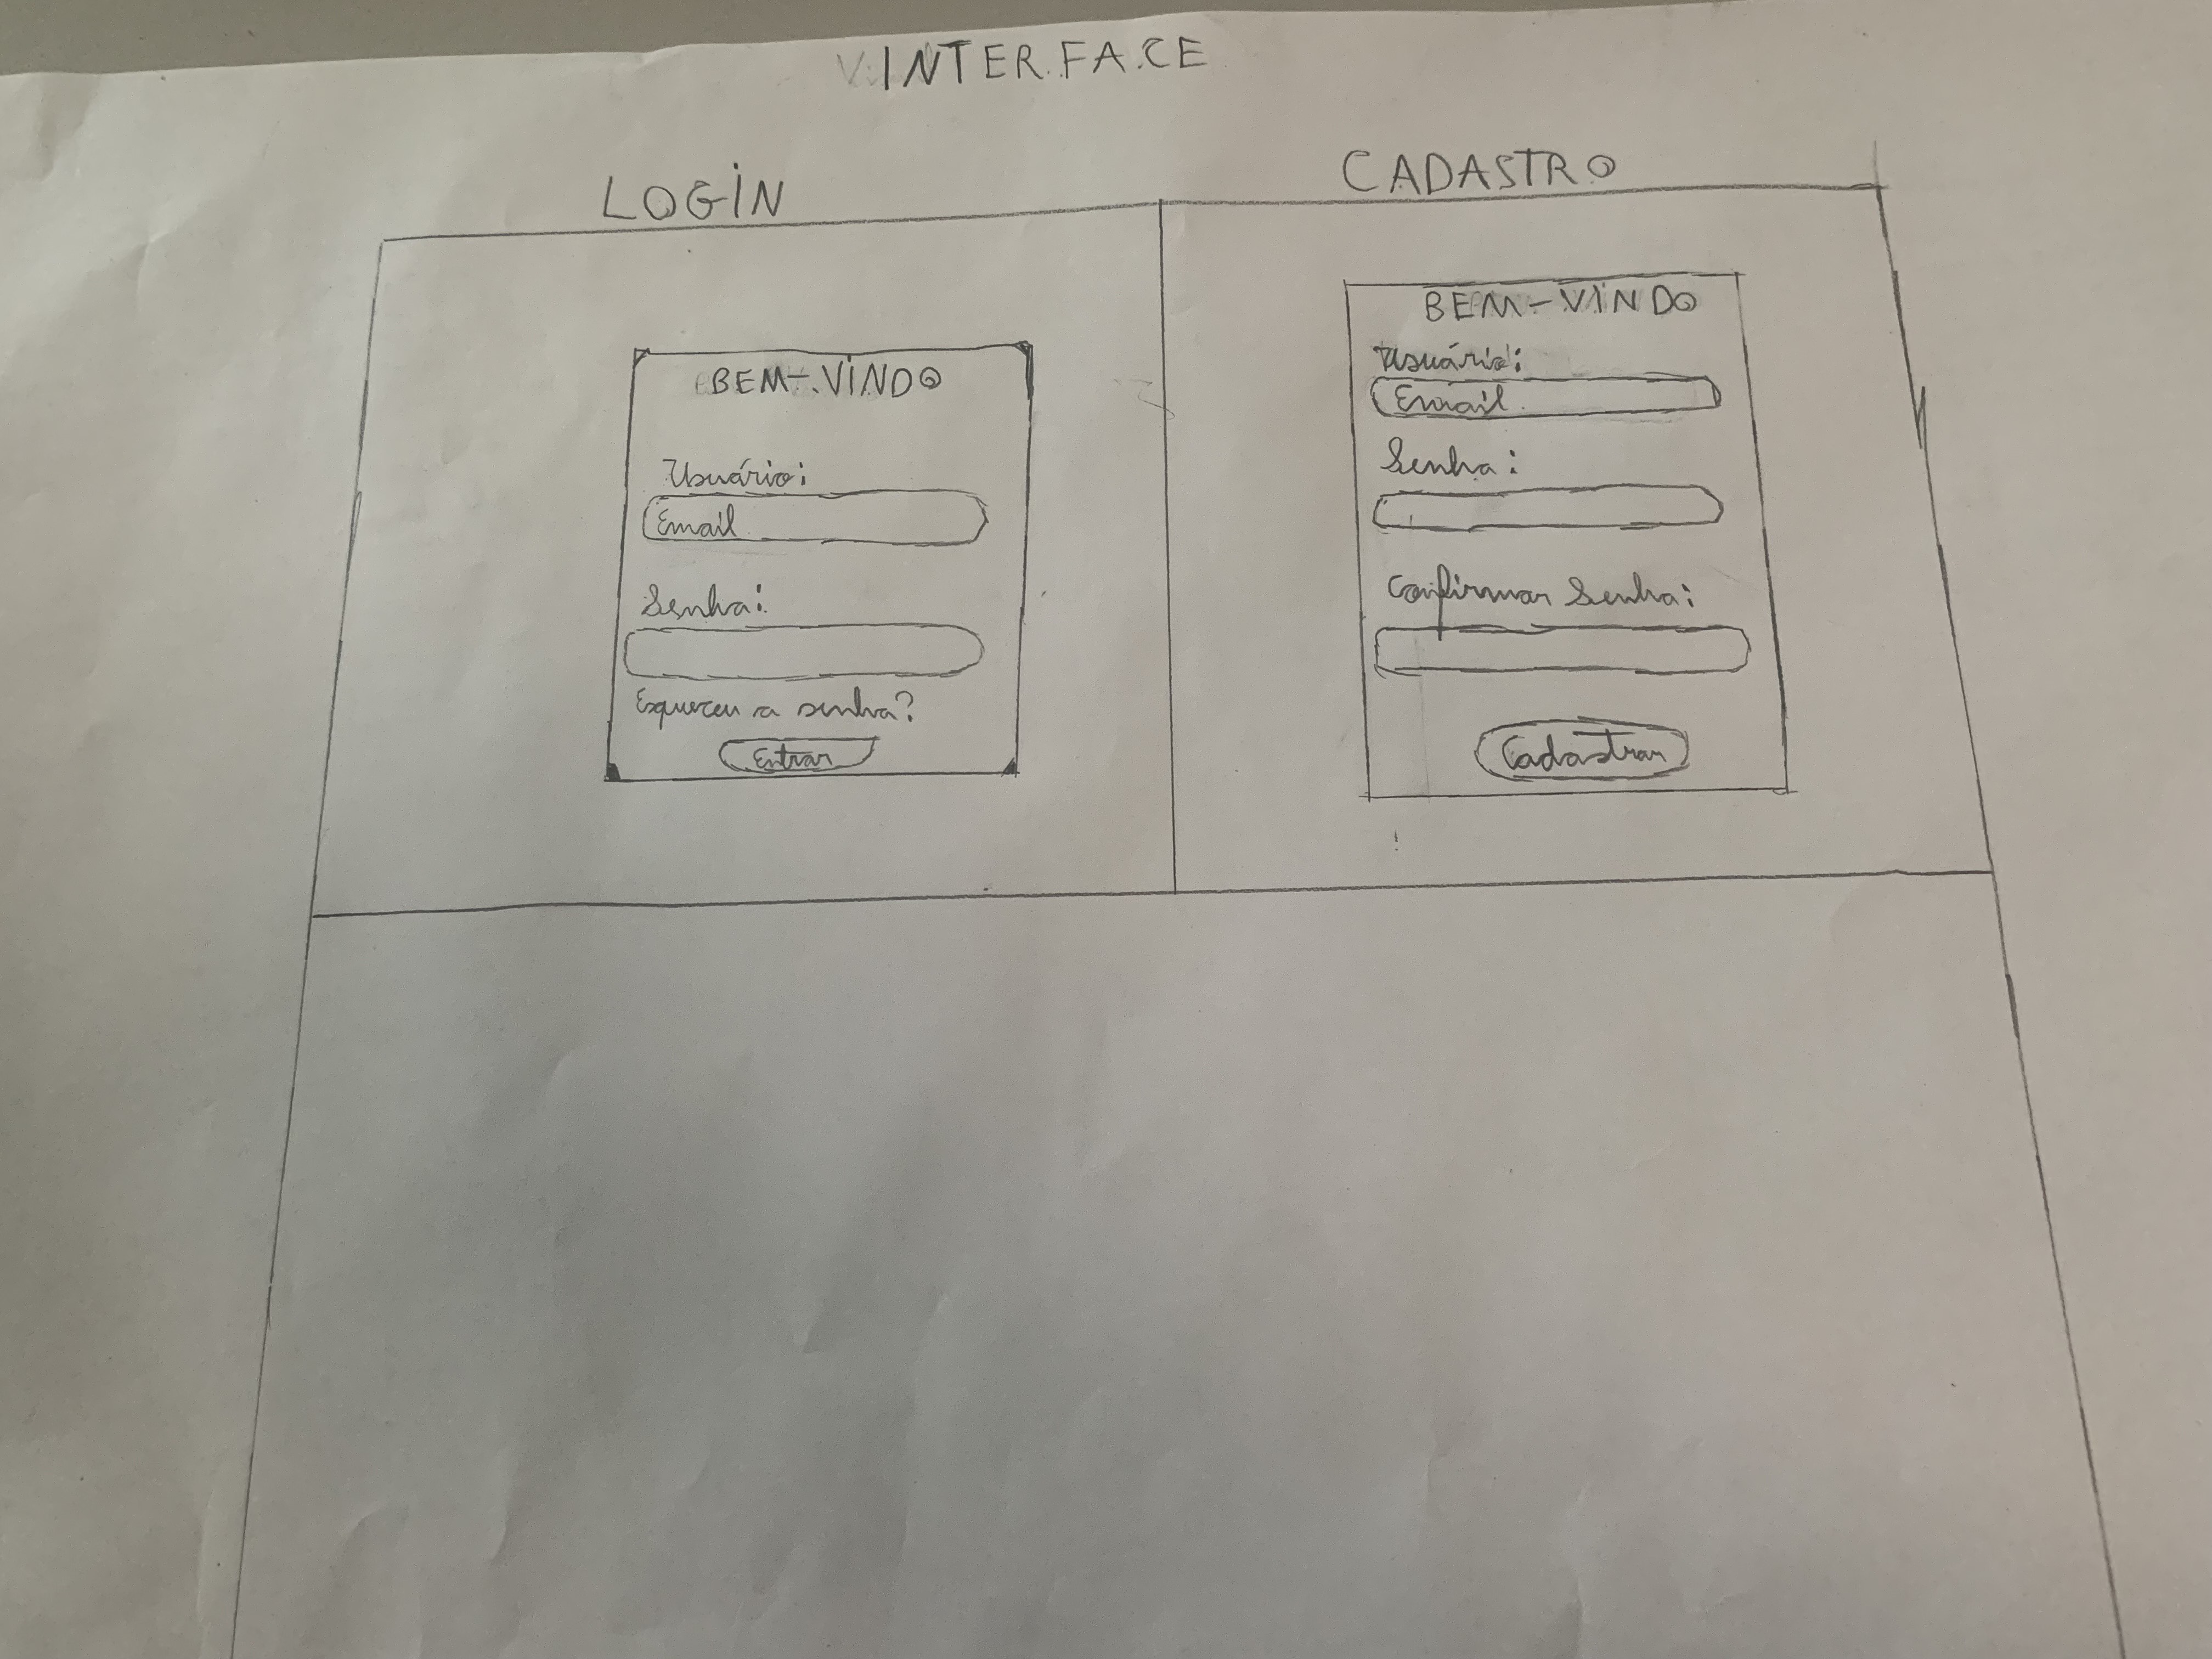 INTERFACE
LOGIN
CADASTRO
BEM-VINDO
Usuário:
Email
Senha:
Esqueceu a senha?
Entrar
BEM-VINDO
Usuário:
Email
Senha:
Confirmar Senha:
Cadastrar